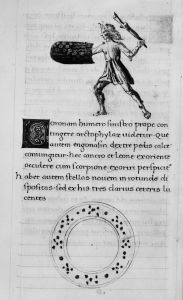 Coronam humero sinistro prope con
tingere arctophylax uidetur. Que
autem engonasin dextre pedis calce
coniungitur. hec cancro et leone exoriente
accidere cum scorpione exoriri perspicit
habet autem stellas nouem in rotundo di
spositas sed ex his tres clarius ceteris lu
centes